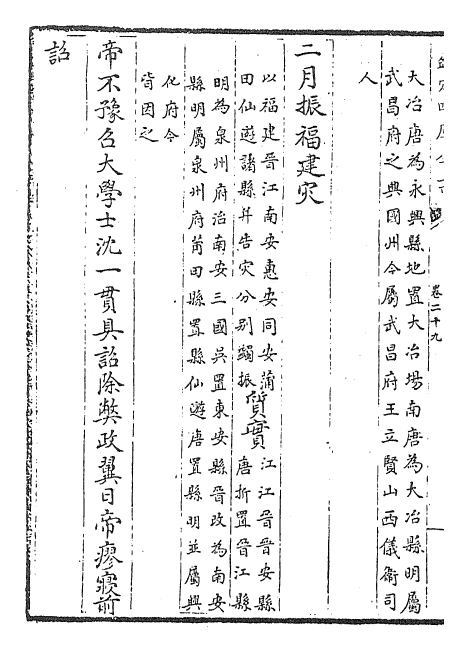 卷二十九
大冶唐為永興縣地置大冶場南唐為大冶縣明屬
武昌府之興國州今屬武昌府王立賢山西儀衛司
人
二月振福建災
以福建晉江南安惠安同安蒲
田仙遊諸縣并告災分别蠲振
質實
江江晉晉安縣
唐折置晉江縣
明為泉州府治南安三國吳置東安縣晉改為南安
縣明屬泉州府莆田縣置縣仙遊唐置縣明並屬興
化府今
皆因之
帝不豫召大學士沈一貫具詔除獘政翼日帝瘳寢前
詔